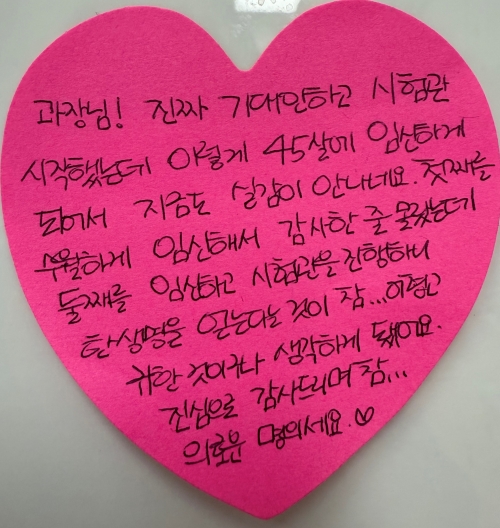 과장님! 진짜 기대안하고 시험관
시작했는데 이렇게 45살에 임신하게
되어서 지금도 실감이 안나네요. 첫째를
수월하게 임신해서 감사한 줄 몰랐는데
둘째를 임신하고 시험관을 진행하니
한생명을 얻는다는 것이 참...어렵고
귀한 것이구나 생각하게 됐어요.
진심으로 감사드리며 참...
의로운 명의세요.♡